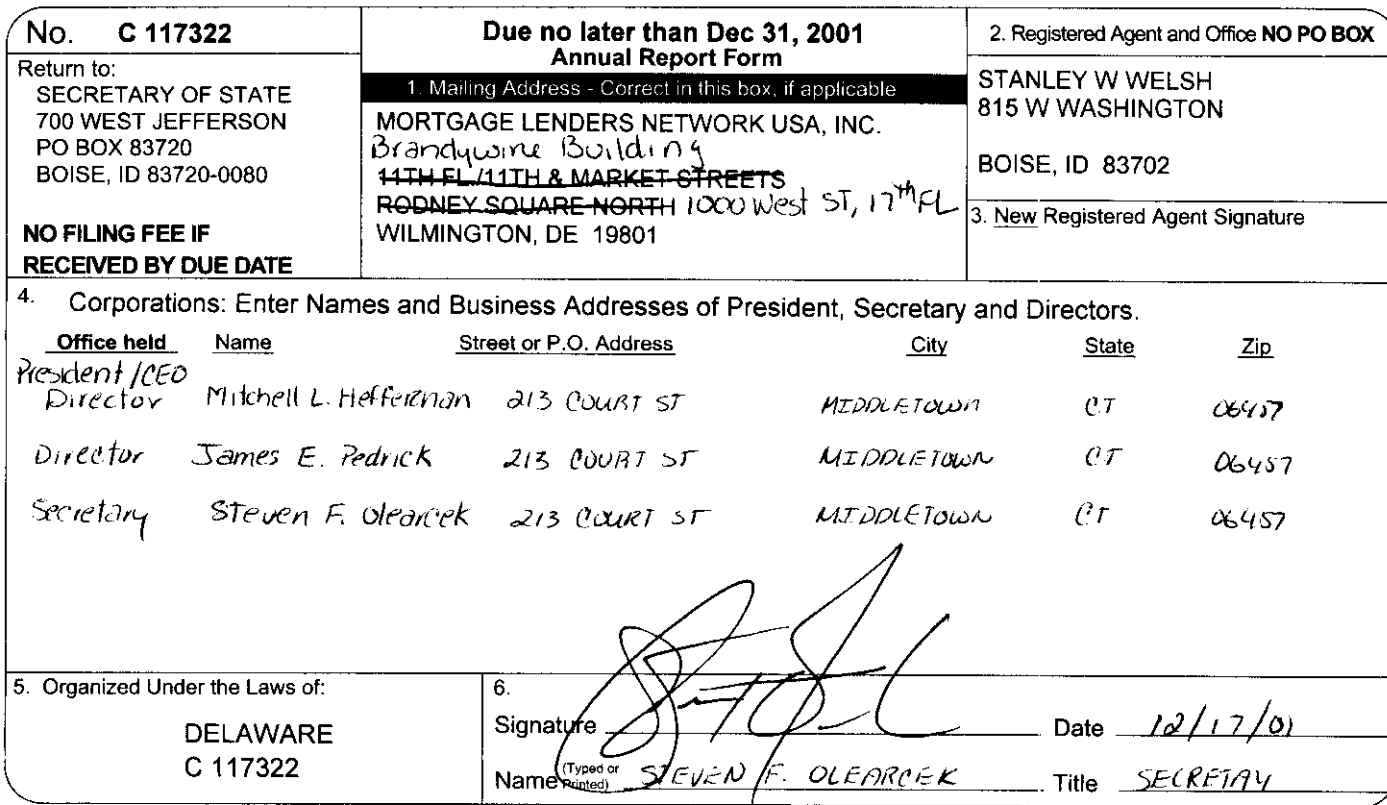 No. C 117322
Return to:
SECRETARY OF STATE
700 WEST JEFFERSON
PO BOX 83720
BOISE, ID 83720-0080
NO FILING FEE IF
RECEIVED BY DUE DATE
Due no later than Dec 31, 2001
Annual Report Form
1. Mailing Address - Correct in this box, if applicable
MORTGAGE LENDERS NETWORK USA, INC.
Brandywine Building
11TH FL./11TH & MARKET STREETS
RODNEY SQUARE NORTH 1000 West ST, 17th FL
WILMINGTON, DE 19801
2. Registered Agent and Office NO PO BOX
STANLEY W WELSH
815 W WASHINGTON
BOISE, ID 83702
3. New Registered Agent Signature
4. Corporations: Enter Names and Business Addresses of President, Secretary and Directors.
Office held Name Street or P.O. Address City State Zip
President/CEO
Director Mitchell L. Heffernan 213 COURT ST MIDDLETOWN CT 06457
Director James E. Pedrick 213 COURT ST MIDDLETOWN CT 06457
Secretary Steven F. Olearcek 213 COURT ST MIDDLETOWN CT 06457
5. Organized Under the Laws of:
DELAWARE
C 117322
6.
Signature Date 12/17/01
Name (Typed or Printed) STEVEN F. OLEARCEK Title SECRETAY